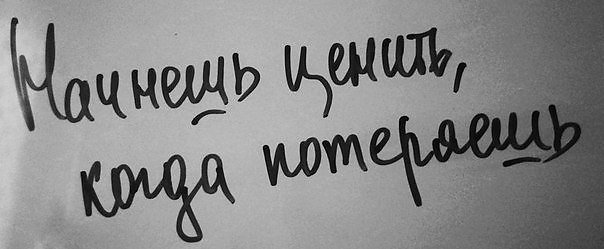 Начнешь ценить,
когда потераешь